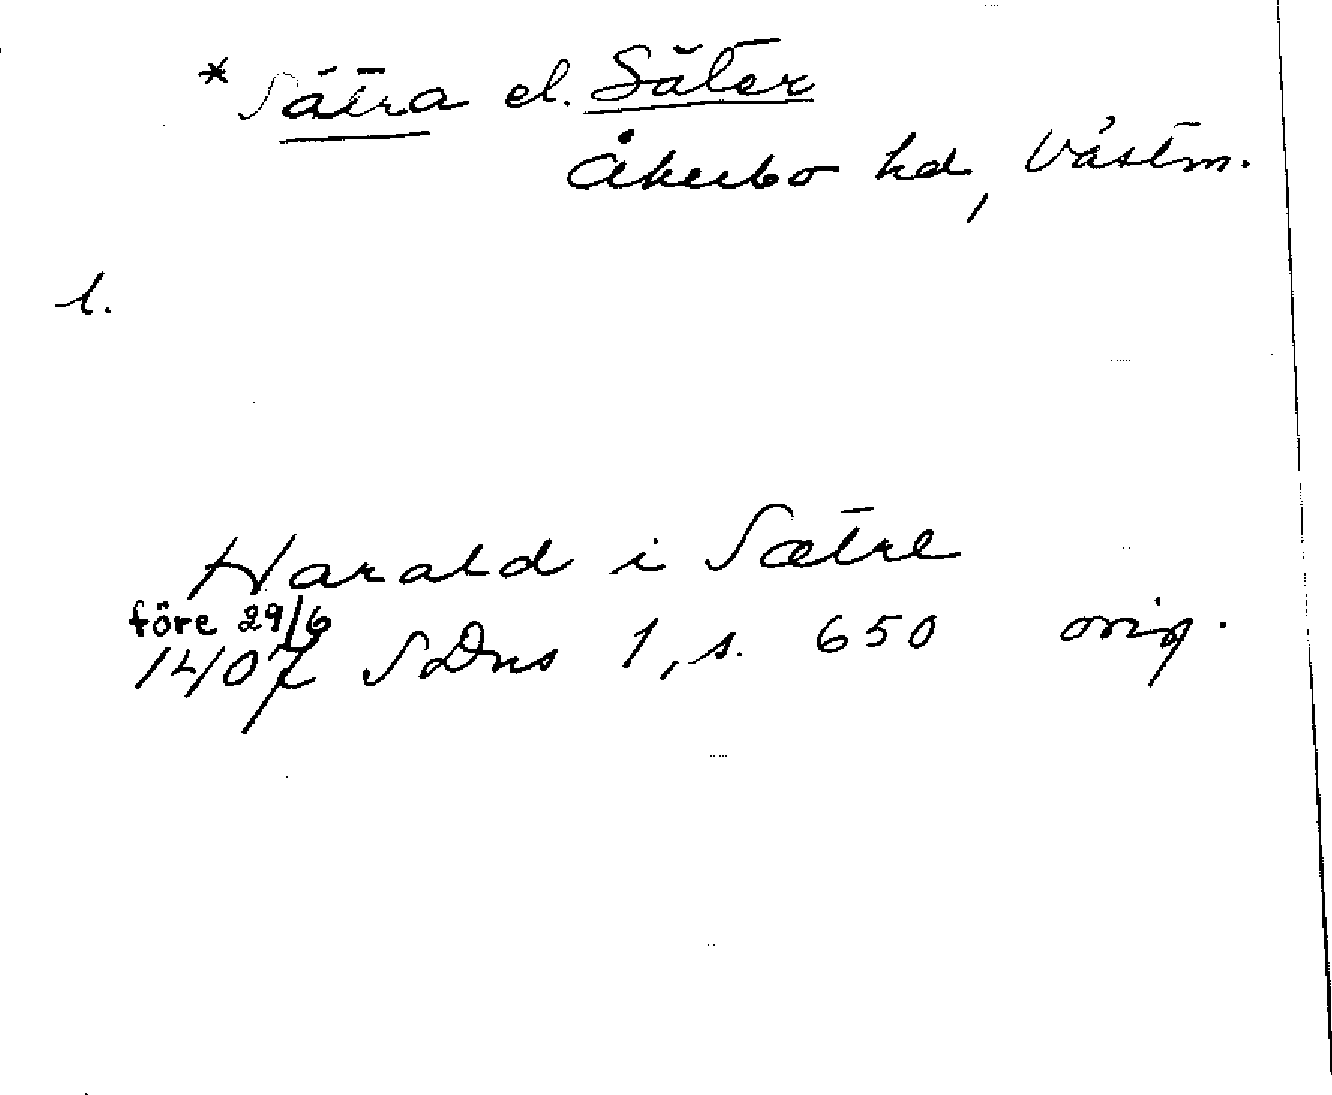 * Sätra el. Säter
Åkerbo hd, Västm.
1.
Harald i Sætre
före 29/6
1407 SDns 1, s. 650 orig.